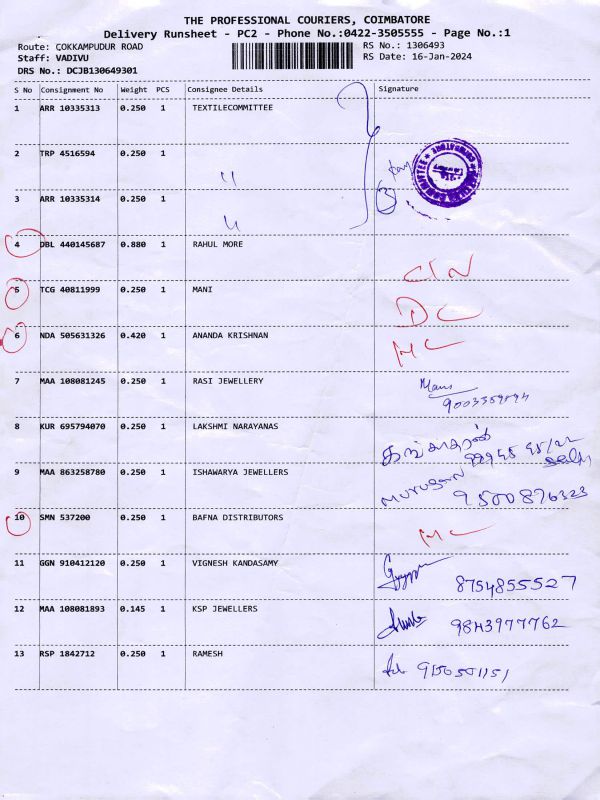 THE PROFESSIONAL COURIERS, COIMBATORE
Delivery Runsheet - PC2 - Phone No.:0422-3505555 - Page No.:1
Route: COKKAMPUDUR ROAD
Staff: VADIVU
DRS No.: DCJB130649301
RS No.: 1306493
RS Date: 16-Jan-2024
S No Consignment No Weight PCS Consignee Details Signature
1 ARR 10335313 0.250 1 TEXTILECOMMITTEE
2 TRP 4516594 0.250 1 "
3 ARR 10335314 0.250 1 " 3
4 DBL 440145687 0.880 1 RAHUL MORE CIN
5 TCG 40811999 0.250 1 MANI DC
6 NDA 505631326 0.420 1 ANANDA KRISHNAN MC
7 MAA 108081245 0.250 1 RASI JEWELLERY
8 KUR 695794070 0.250 1 LAKSHMI NARAYANAS
9 MAA 863258780 0.250 1 ISHAWARYA JEWELLERS MURUGAN
9500876323
10 SMN 537200 0.250 1 BAFNA DISTRIBUTORS MC
11 GGN 910412120 0.250 1 VIGNESH KANDASAMY 8754855527
12 MAA 108081893 0.145 1 KSP JEWELLERS 9843977762
13 RSP 1842712 0.250 1 RAMESH 9150501151